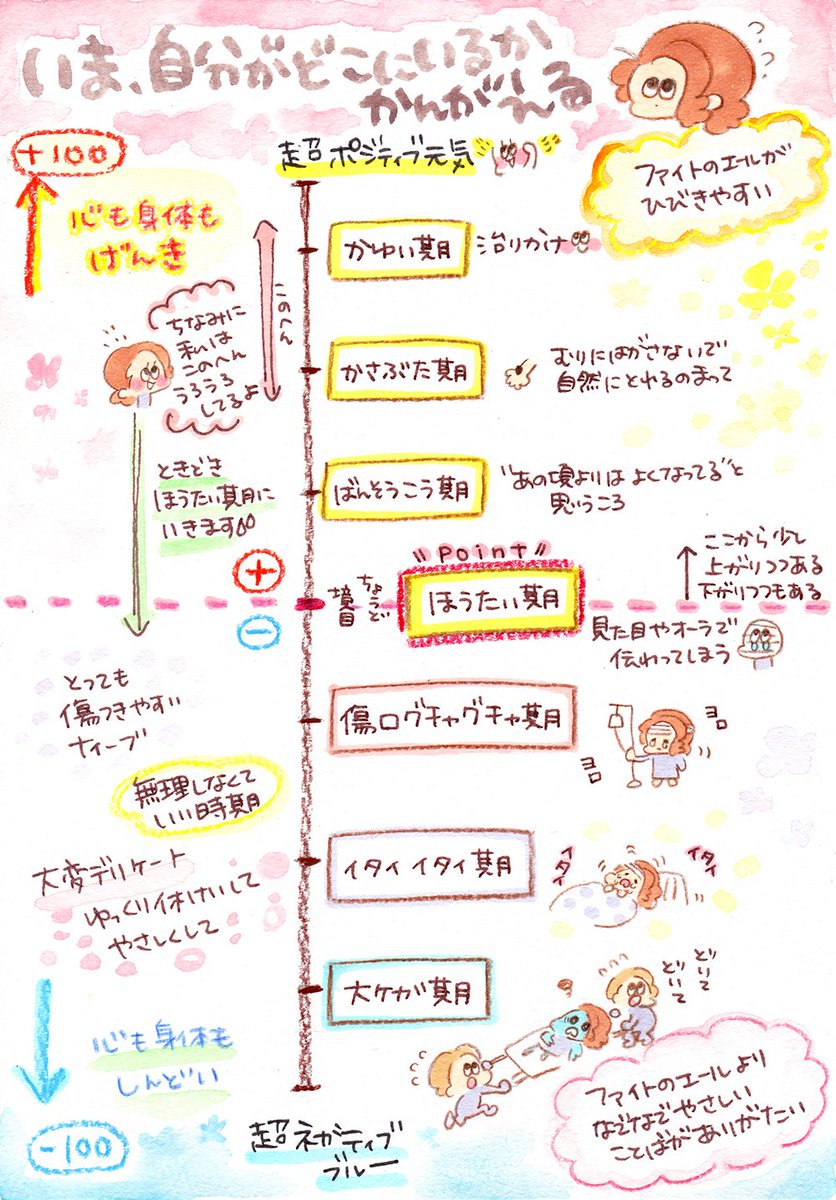 いま、自分がどこにいるか
かんがえる
? ? ?
+100
超ポジティブ元気
ファイトのエールが
ひびきやすい
心も身体も
げんき
かゆい期
治りかけ
このへん
ちなみに
私は
このへん
うろうろ
してるよ
かさぶた期
むりにはがさないで
自然にとれるのまって
ときどき
ほうたい期に
いきます
ばんそうこう期
"あの頃よりは よくなってる"と
思うころ
"point"
ここから少し
上がりつつある
下がりつつもある
+
ちょうど
境目
ほうたい期
−
見た目やオーラで
伝わってしまう
とっても
傷つきやすい
ナイーブ
傷口グチャグチャ期
ヨロ
ヨロ
無理しなくて
いい時期
大変デリケート
ゆっくり休けいして
やさしくして
イタイ イタイ期
イタイ
イタイ
大ケガ期
どいて
どいて
心も身体も
しんどい
ファイトのエールより
なでなでやさしい
ことばがありがたい
-100
超ネガティブ
ブルー